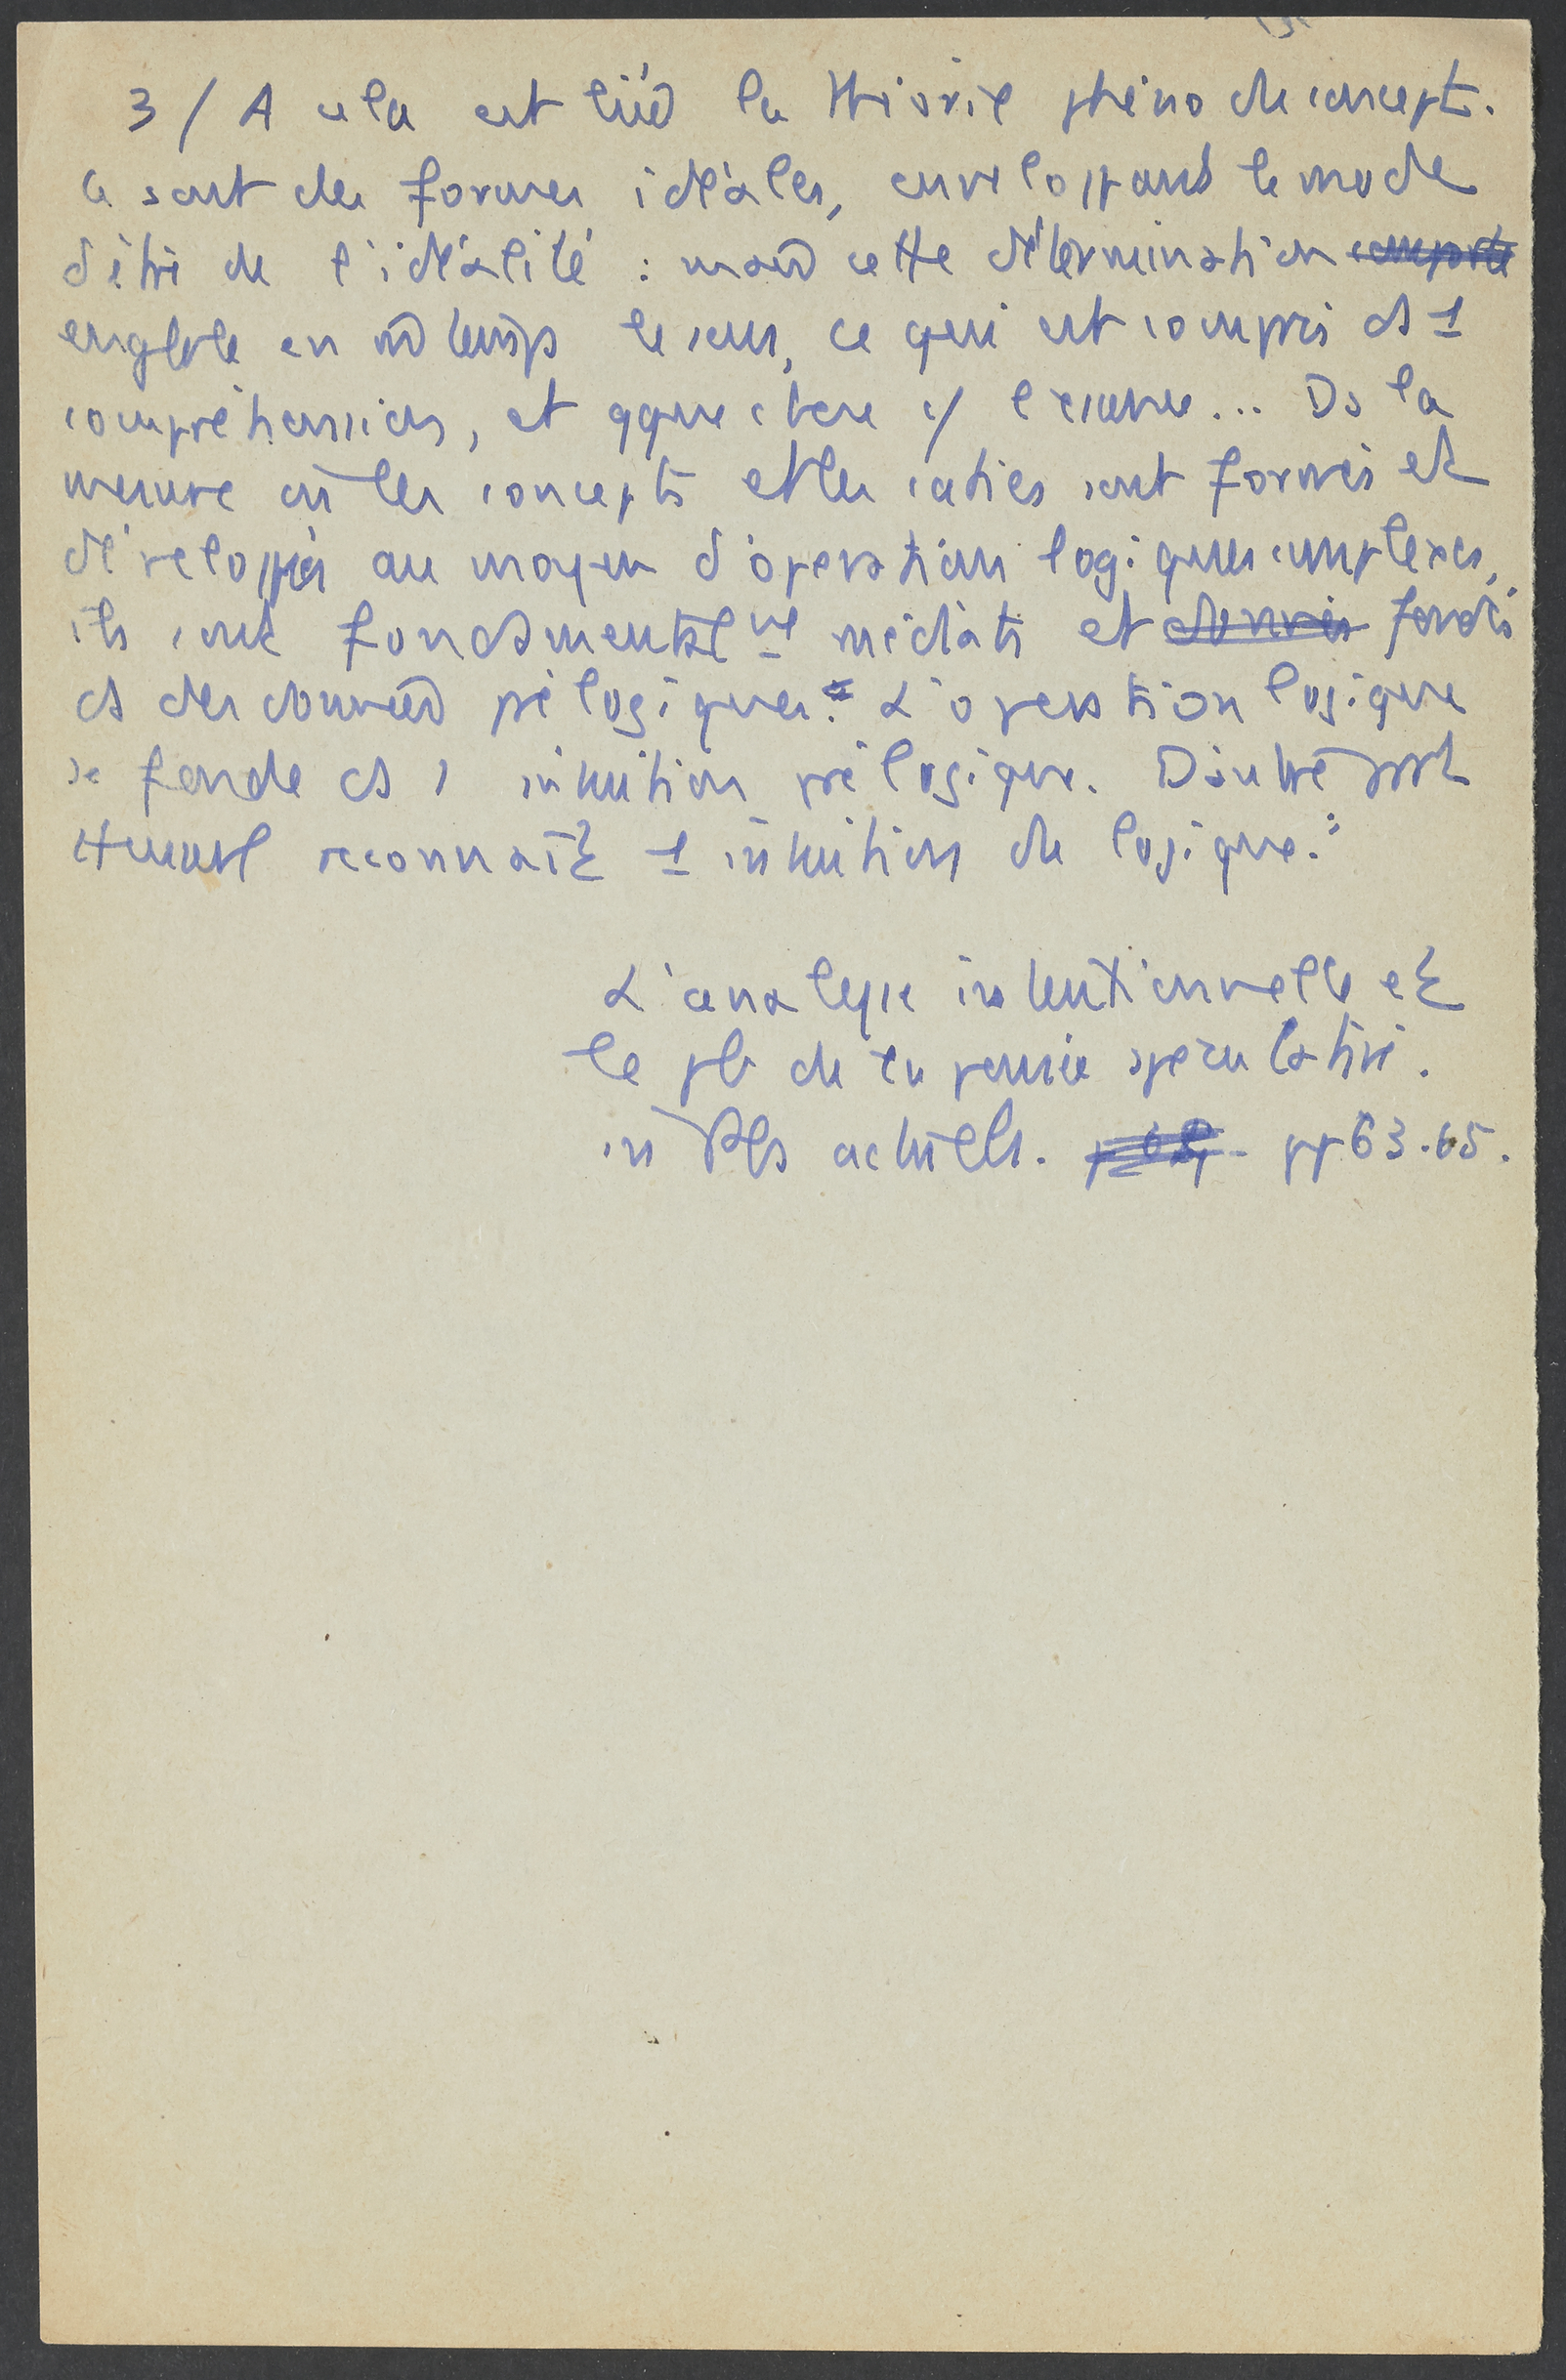 3/ A cela est liée la théorie phéno du concept.
Ce sont des formes idéales, enveloppant le mode
d'être de l'idéalité : mais cette détermination comporte
englobe en m̂ temps le sens, ce qui est compris ds 1
compréhension, et qque chose c/ l'essence... Ds la
mesure où les concepts et les caties sont formés et
développés au moyen d'opérations logiques complexes,
ils sont fondamentalmt médiats et donnés fondés
ds des données prélogiques. L'opération logique
se fonde ds 1 intuition prélogique. D'autre part
Husserl reconnaît 1 intuition du logique.
L'analyse intentionnelle et
le pb de la pensée spéculative.
in Pbs actuels. pp 63.65.